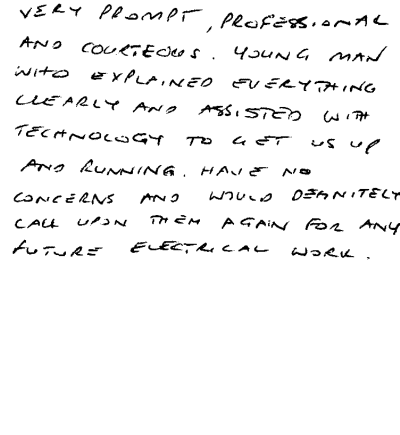 VERY PROMPT, PROFESSIONAL
AND COURTEOUS. YOUNG MAN
WHO EXPLAINED EVERYTHING
CLEARLY AND ASSISTED WITH
TECHNOLOGY TO GET US UP
AND RUNNING. HAVE NO
CONCERNS AND WOULD DEFINITELY
CALL UPON THEM AGAIN FOR ANY
FUTURE ELECTRICAL WORK.